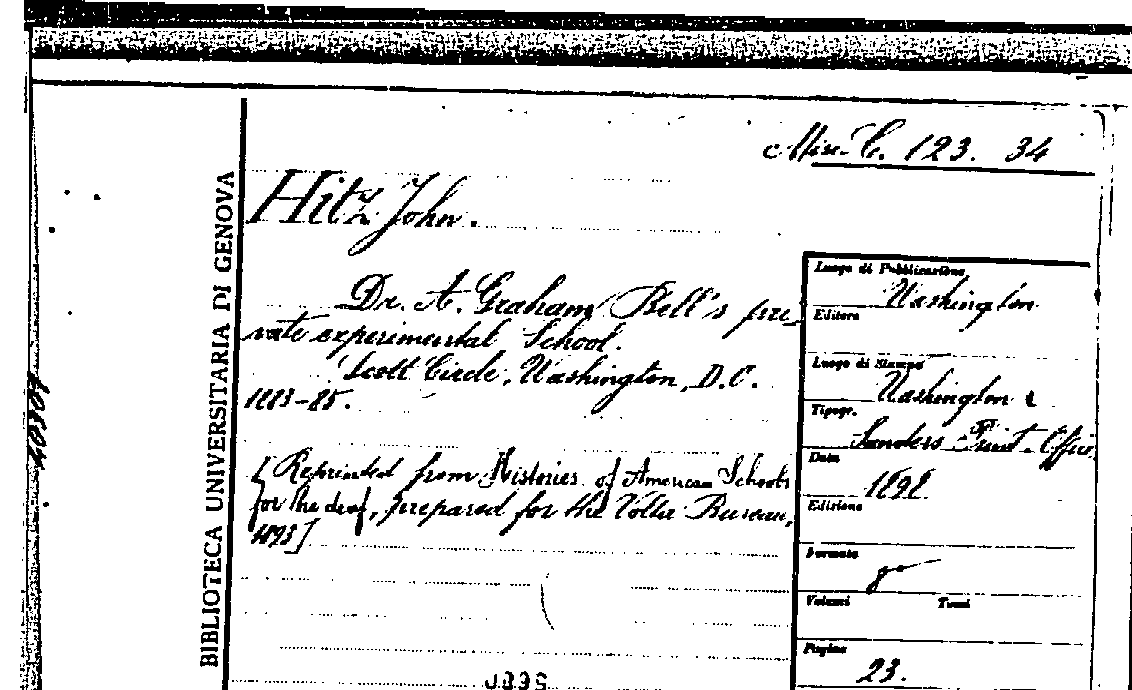 Misc. C. 123. 34
BIBLIOTECA UNIVERSITARIA DI GENOVA
Hitz John.
Dr. A. Graham Bell's pri-
vate experimental School.
Scott Circle, Washington, D.C.
1883-85.
[Reprinted from Histories of American Schools
for the deaf, prepared for the Volta Bureau,
1893]
Luogo di Pubblicazione
Washington
Editore
Luogo di Stampa
Washington
Tipogr.
Sanders Print. Office
Data
1898
Edizione
Formato
8º
Volumi Tomi
Pagine
23.